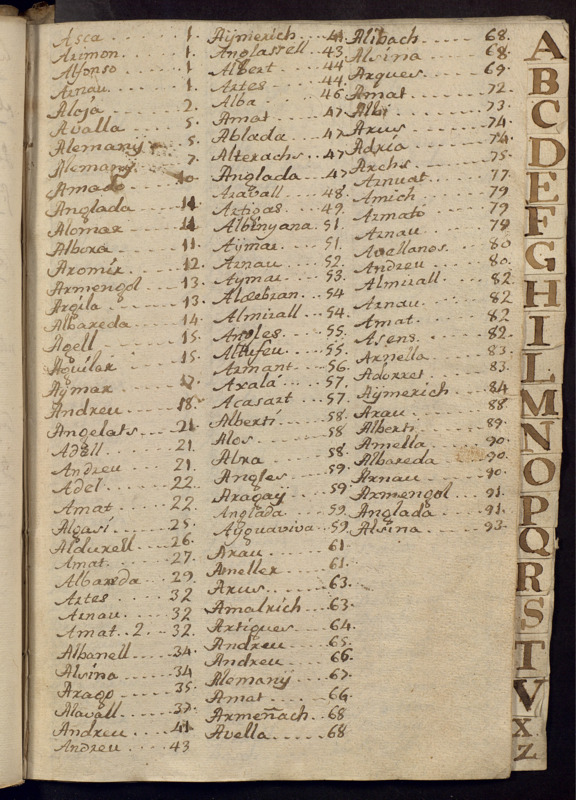 Asca 1.
Arimon 1
Alfonso 1
Arnau 1.
Aloja 2.
Avalla 5.
Alemany 5.
Alemany 7.
Amado 10
Anglada 11
Alomar 11
Albora 11.
Aromir 12.
Armengol 13.
Argila 13.
Albareda 14.
Agell 15
Aguilar 15
Aymar 17.
Andreu 18.
Angelats 21.
Adell 21.
Andreu 21.
Adel 22
Amat 22
Algasi 25.
Aldurell 26.
Amat 27.
Albareda 29.
Artes 32
Arnau 32
Amat. 2. 32.
Albanell 34.
Alsina 34
Arago 35
Alavall 37.
Andreu 41
Andreu 43
Aymerich 41.
Anglasell 43.
Albert 44
Artes 44.
Alba 46
Amat 47
Ablada 47
Alterachs 47
Anglada 47
Aravall 48.
Artigas 49.
Albinyana 51.
Aymar 51.
Arnau 52.
Aymar 53.
Aldebran 54
Almirall 54.
Angles 55.
55.
Armant 56.
Axalá 57.
Acasart 57.
Alberti 58.
Alos 58
Abra 58.
Angles 59.
Aragay 59.
Anglada 59.
Ayguaviva 59.
Arau 61
Ameller 61.
Arus 63.
Amalrich 63.
Artigues 64.
Andreu 65.
Andreu 66.
Alemany 67.
Amat 66.
Armeñach 68
Avella 68
Alibach 68.
Alsina 68.
Argues 69.
Amat 72.
Albi 73.
Arus 74.
Adria 74.
Archs 75.
Arnuat 77.
Amich 79
Armató 79
Arnau 79
Avellanos 80
Andreu 80.
Almirall 82
Arnau 82
Amat 82
Asens 82.
Arnella 83.
Adorret 83.
Aymerich 84
Arau 88
Alberti 89.
Amella 90.
Albareda 90.
Arnau 90.
Armengol 91.
Anglada 91.
Alsina 93.
A
B
C
D
E
F
G
H
I
L
M
N
O
P
Q
R
S
T
V
X
Z